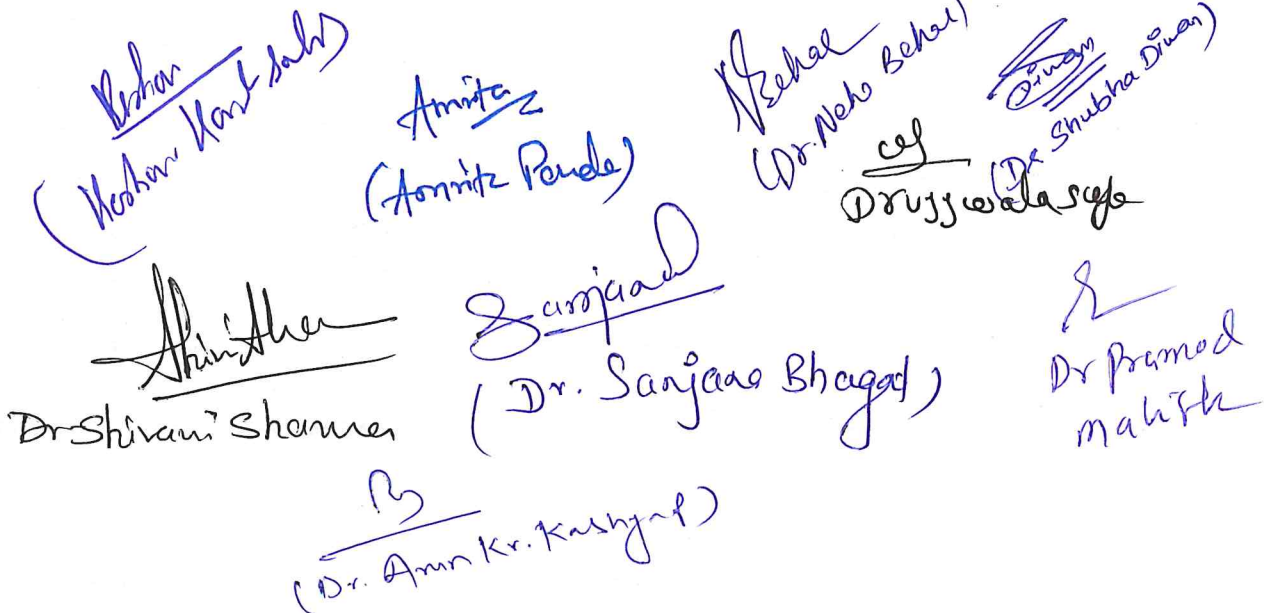 Keshav
(Keshav Kant Sahu)
Amrita
(Amrita Pande)
NBehal
(Dr. Neha Behal)
Diwan
(Dr Shubha Diwan)
Dr Ujjwala
Dr Shivani Sharma
Sanjana
(Dr. Sanjana Bhagat)
Dr Pramod
Mahish
(Dr. Arun Kr. Kashyap)